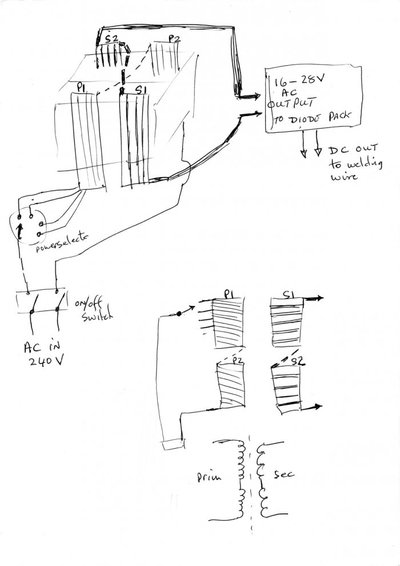 S2
P2
P1
S1
16-28V
AC
OUTPUT
TO DIODE PACK
DC OUT
to welding
wire
powerselecte
on/off
switch
AC IN
240V
P1
S1
P2
S2
prim
sec